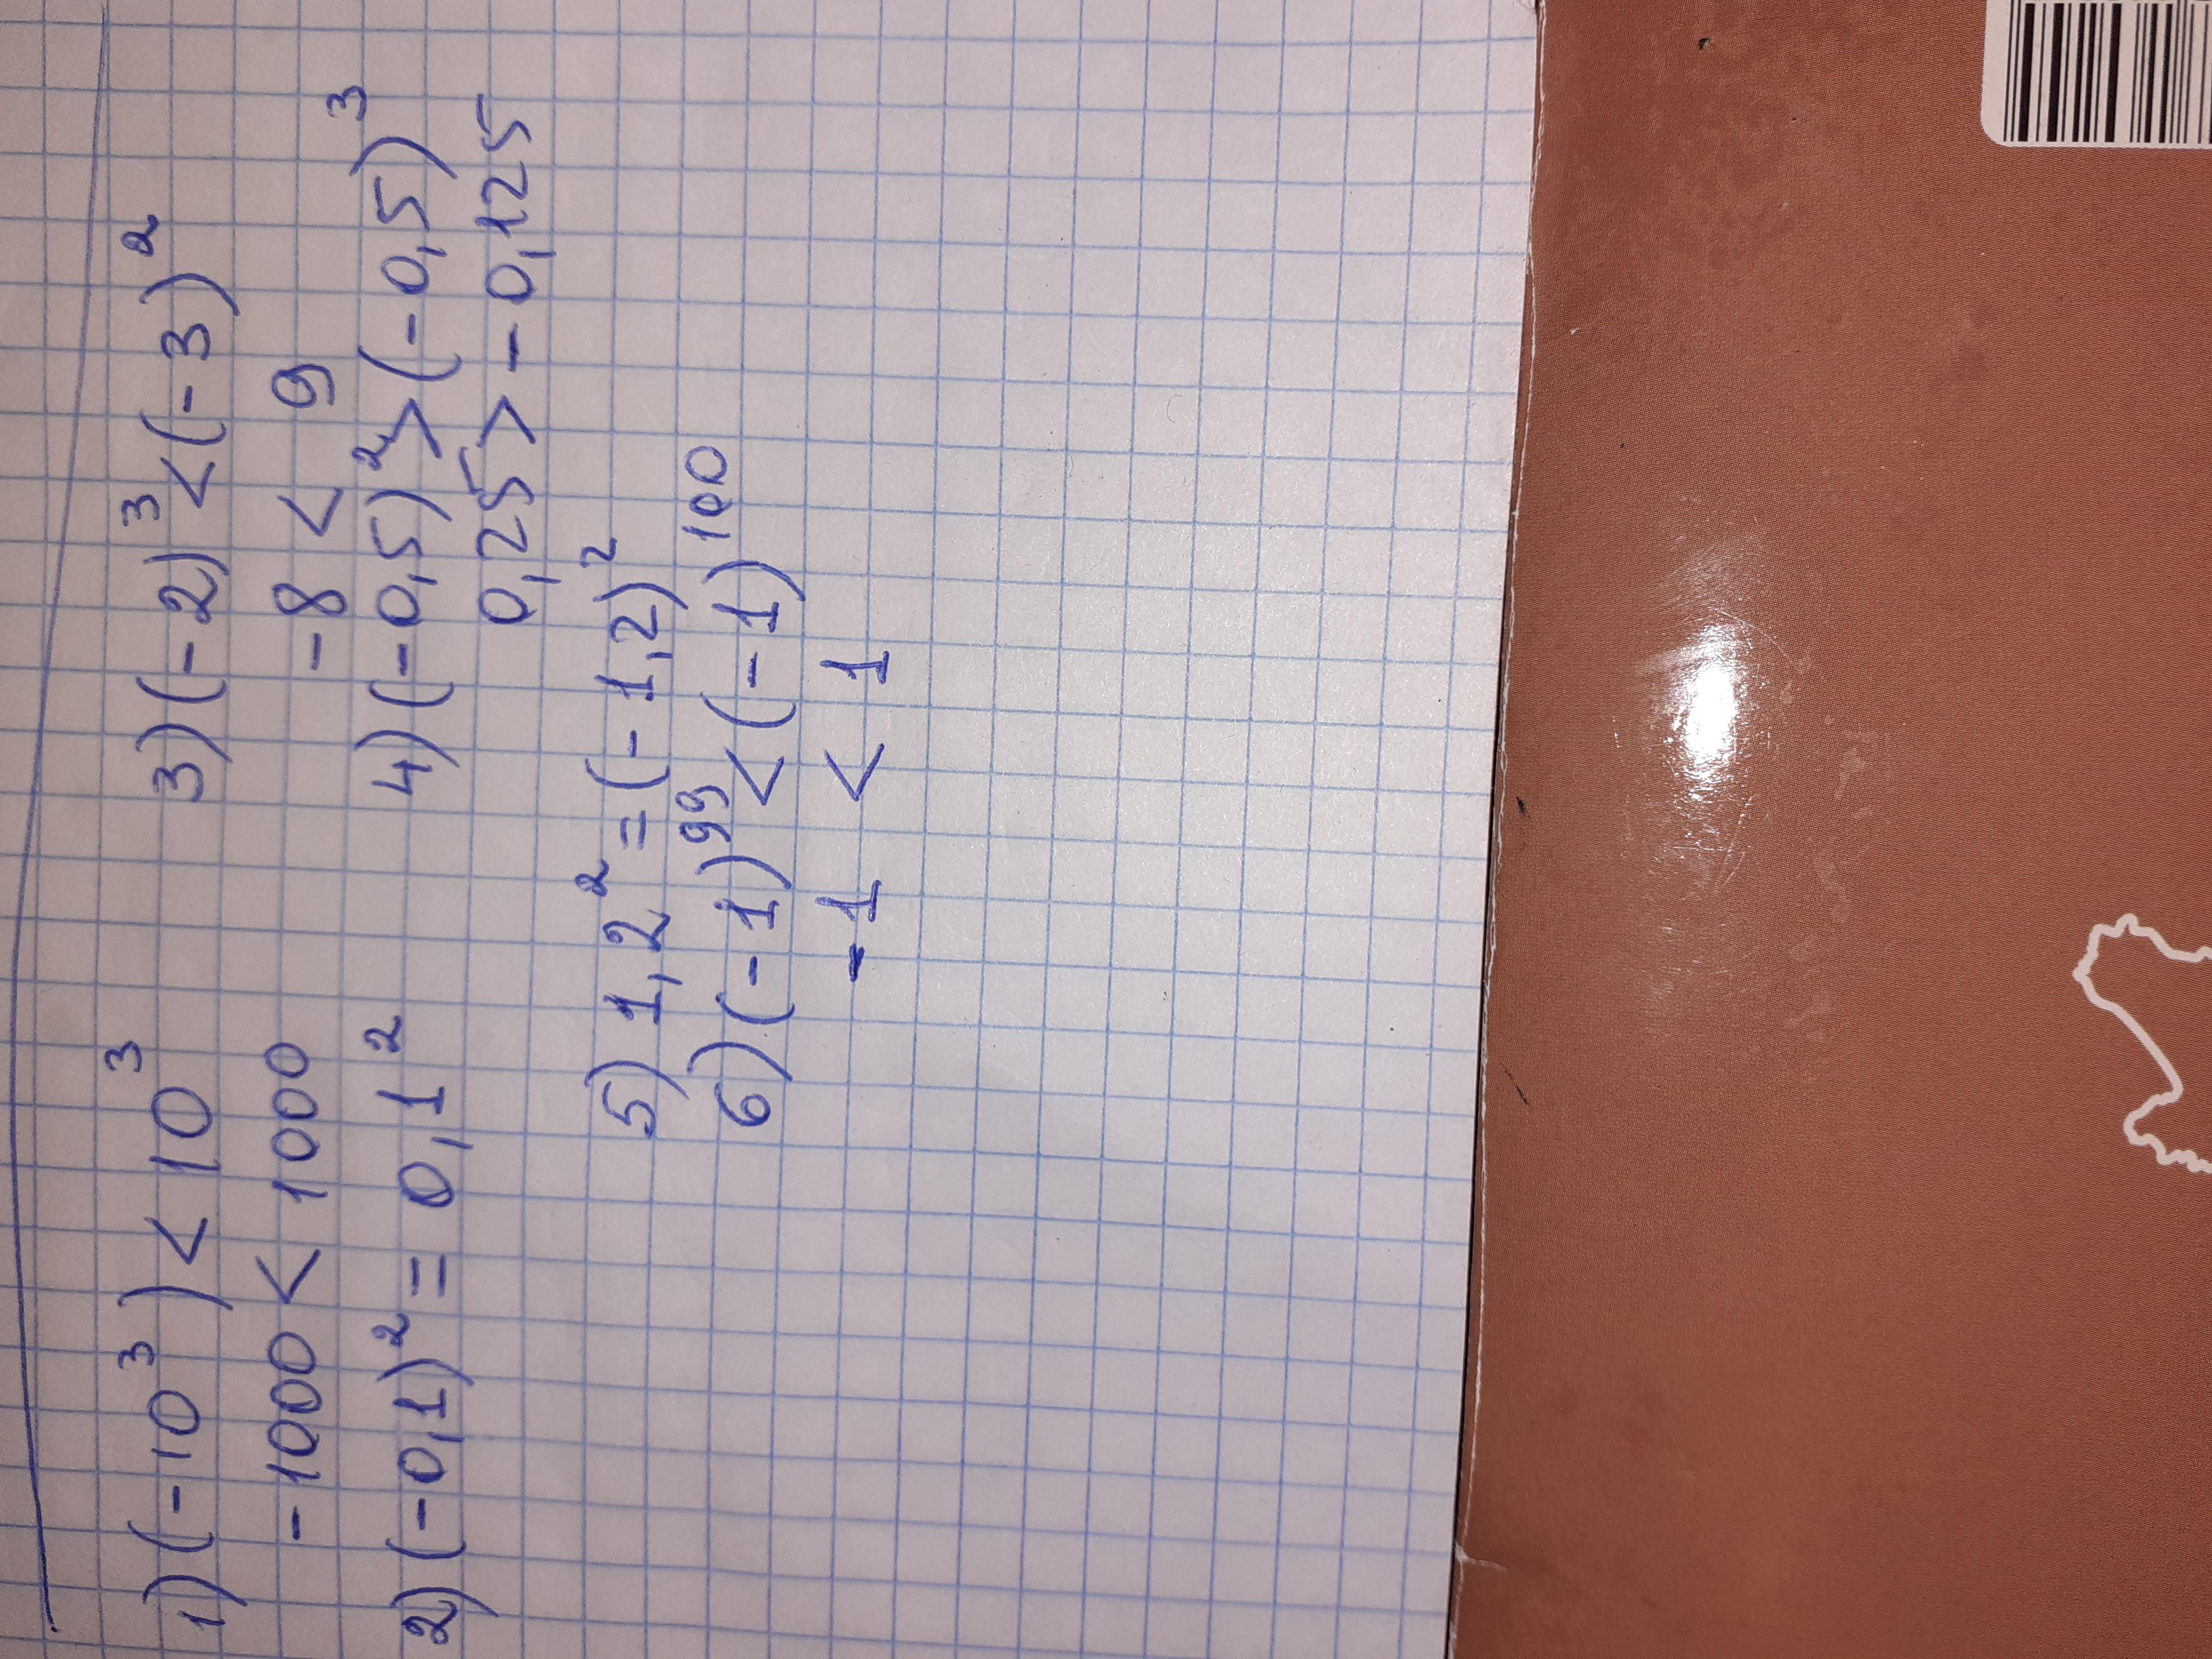 1) (-10³) < 10³
-1000 < 1000
2) (-0,1)² = 0,1²
3) (-2)³ < (-3)²
-8 < 9
4) (-0,5)² > (-0,5)³
0,25 > -0,125
5) 1,2² = (-1,2)²
6) (-1)⁹⁹ < (-1)¹⁰⁰
-1 < 1